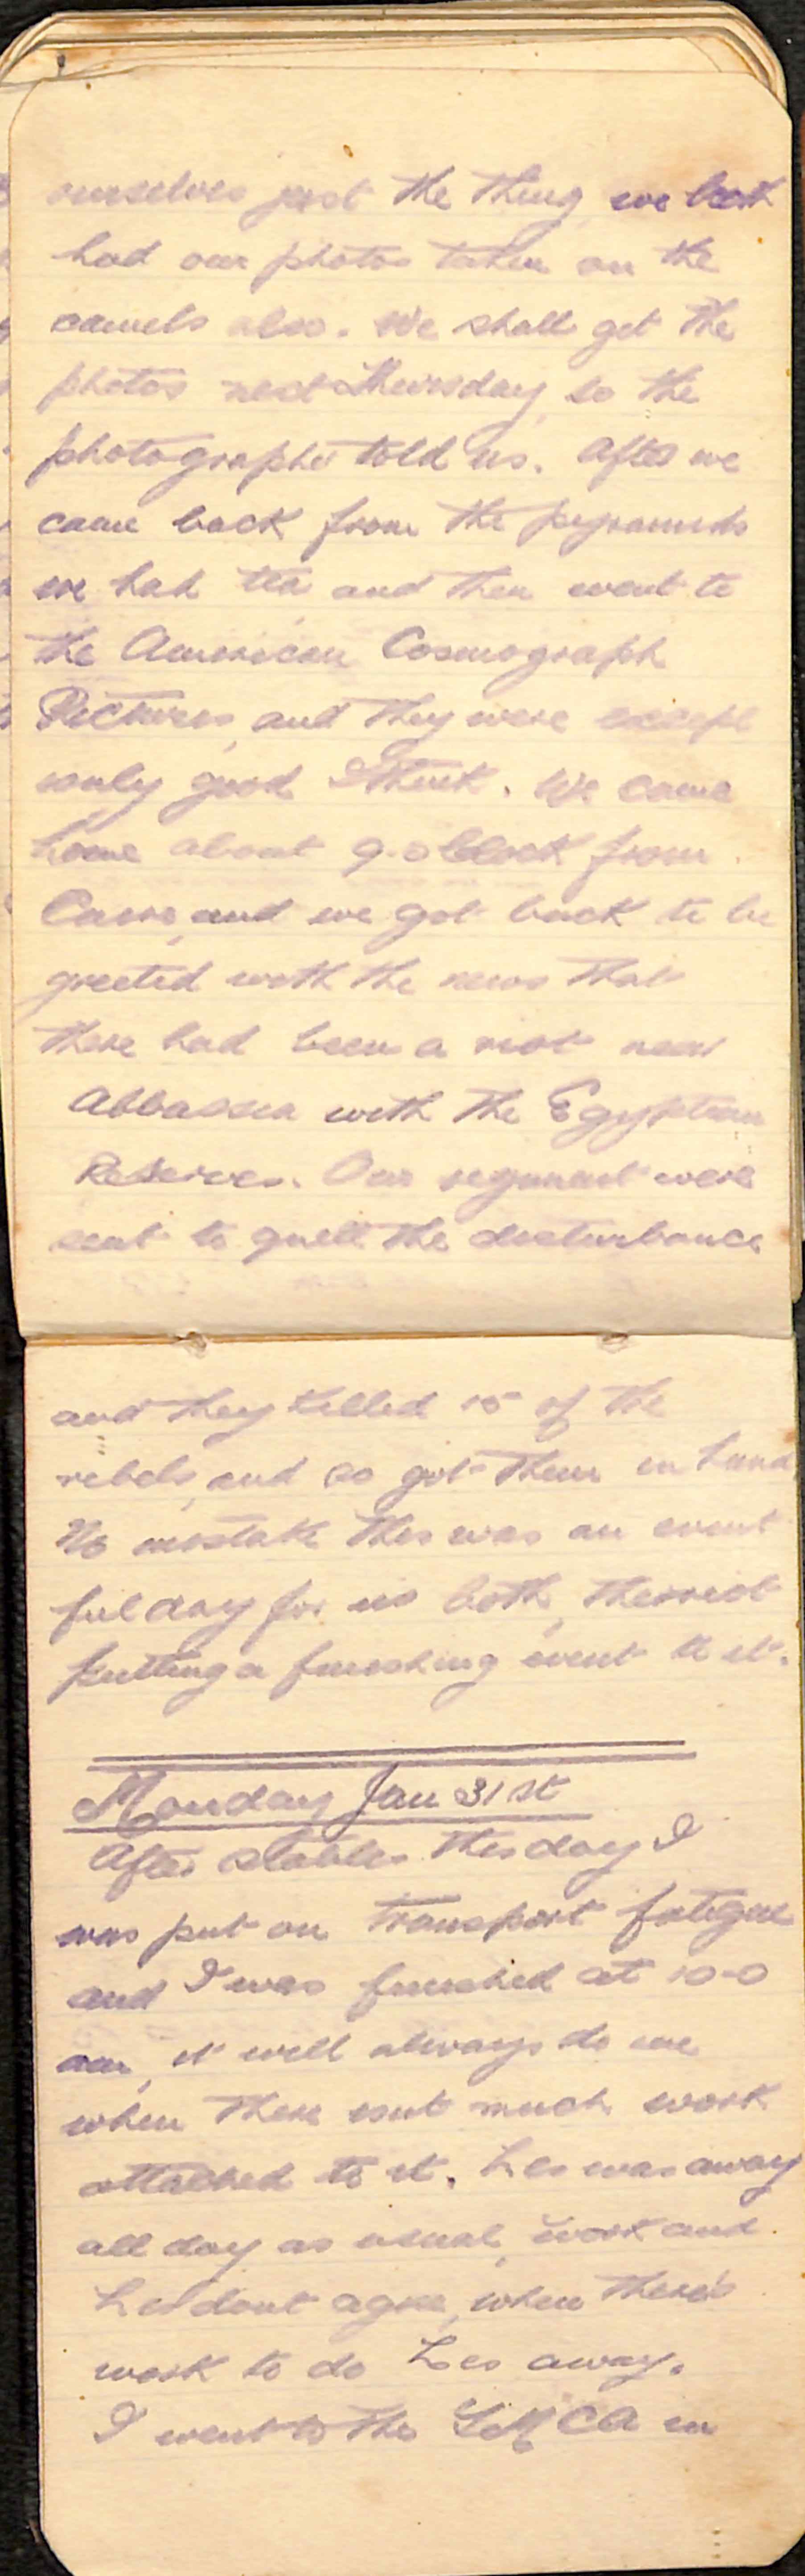 ourselves just the thing, we both
had our photos taken on the
camels also. We shall get the
photos next Thursday, so the
photographer told us. After we
came back from the pyramids
we had tea and then went to
the American Cosmograph
Pictures, and they were except
ionly good I think. We came
home about 9-o Clock from
Cairo, and we got back to be
greeted with the news that
there had been a riot near
Abbassia with the Egyptian
Reserves. Our regiment were
sent to quell the disturbance
and they killed 15 of the
rebels, and so got them in hand
No mistake this was an event
ful day for us both, the riot
putting a finishing event to it.
Monday Jan 31st
After stables this day I
was put on transport fatigue
and I was finished at 10-0
am, it will always do me
when there isnt much work
attached to it. Les was away
all day as usual, work and
Les dont agree, when there's
work to do Les away.
I went to the YMCA in